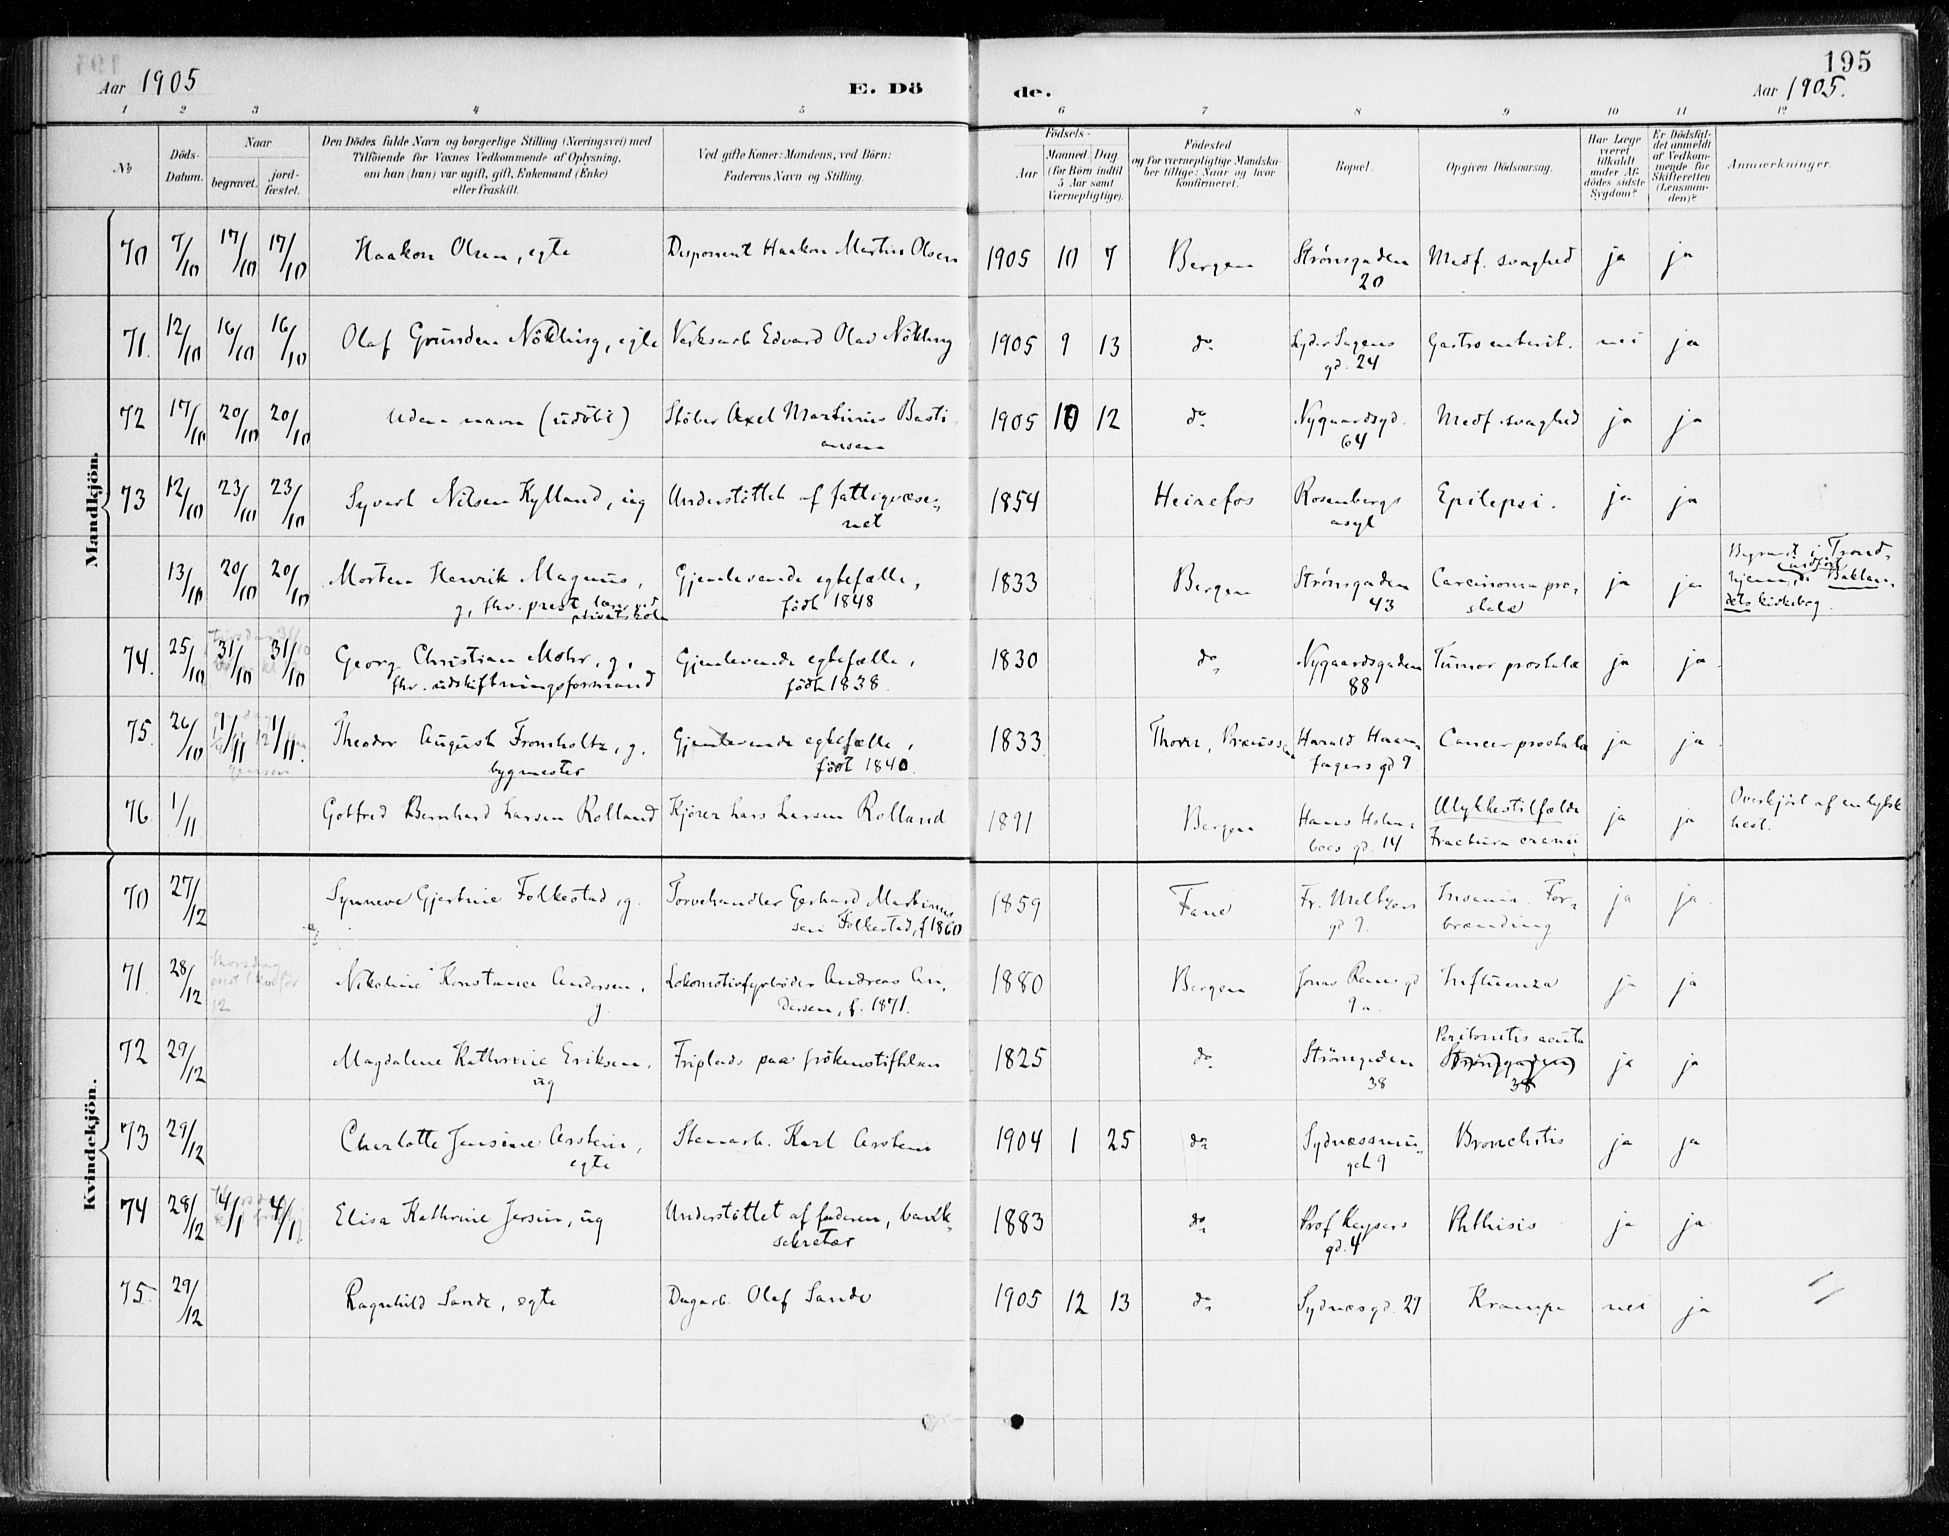 195
Aar 1905 E. Dö de. Aar 1905.
1 2 3 4 5 6 7 8 9 10 11 12
№ Döds-Datum. Naar begravet. jordfæstet. Den Dödes fulde Navn og borgerlige Stilling (Næringsvei) med Tilföiende for Voxnes Vedkommende af Oplysning, om han (hun) var ugift, gift, Enkemand (Enke) eller fraskilt. Ved gifte Koner: Mandens, ved Börn: Faderens Navn og Stilling. Födsels- Aar Maaned Dag (for Börn indtil 5 Aar samt Værnepligtige). Födested og for værnepligtige Mandskaber tillige: Naar og hvor konfirmeret. Bopæl. Opgiven Dödsaarsag. Har Læge været tilkaldt under Afdödes sidste Sygdom? Er Dödsfaldet anmeldt af Vedkommende for Skifteretten (Lensmanden)? Anmærkninger.
Mandkjön.
70 7/10 17/10 17/10 Haakon Olsen, egte Disponent Haakon Martin Olsen 1905 10 7 Bergen Strömgaden 20 Medf. svaghed ja ja
71. 12/10 16/10 16/10 Olaf Nökling, egte Edvard Olav Nökling 1905 9 13 do Lyder Sagens gd. 24 Gastroenterit. nei ja
72 17/10 20/10 20/10 Uden navn (udöbt) Stöber Axel Martinus Bastiansen 1905 10 12 do Nygaardsgd. 64 Medf. svaghed ja ja
73 12/10 23/10 23/10 Syvert Nilsen Kylland, ug Understöttet af fattigvæsenet 1854 Heirefos Rosenbergs asyl Epilepsi. ja ja
13/10 20/10 20/10 Morten Henrik Magnus, g, fhv. prest, lærer ved privatskole Gjenlevende egtefælle, födt 1848 1833 Bergen Strömgaden 43 Carcinoma prostatæ ja ja Begravet i Trondhjem, indfört i Baklandets kirkebog.
74. 25/10 31/10 31/10 Georg Christian Mohr, g, fhv. udskiftningsformand Gjenlevende egtefælle, födt 1838. 1830 do Nygaardsgaden 88 Tumor prostatæ ja ja
75. 26/10 1/11 1/11. Theodor August Fronsholtz, g. bygmester Gjenlevende egtefælle, födt 1840. 1833 Thorn, Preussen Harald Haarfagers gd 9 Cancer prostatæ ja ja
76 1/11 Gotfred Bernhard Larsen Rolland Kjörer Lars Larsen Rolland 1891 Bergen Hans Holmboes gd. 14 Ulykkestilfælde Fractura cranii ja ja Overkjört af en hest.
Kvindekjön.
70 27/12 Synneve Gjertine Folkestad, g. Torvehandler Gerhard Martinussen Folkestad, f 1860 1859 Fane Fr. Meltzers gd 9. Insania. Forbrænding ja ja
71. 28/12 Nikoline Konstance Andersen, g Lokomotivfyrböder Andreas Andersen, f. 1871. 1880 Bergen Jonas Reins gd 9 a. Influenza ja ja
72 29/12 Magdalene Kathrine Eriksen, ug Friplads paa frökenstiftelsen 1825 do Strömgaden 38 Peritonitis acuta Strömgaden 38 ja ja
73 29/12 Charlotte Jensine Arstein, egte Stenarb. Karl Arstein 1904 1 25 do Sydnæssmuget 9 Bronchitis ja ja
74 28/12 4/1 4/1 Elisa Kathrine Jersin, ug Understöttet af faderen, banksekretær 1883 do Prof Keysers gd. 4 Phthisis ja ja
75. 29/12 Ragnhild Sande, egte Dagarb. Olaf Sande 1905 12 13 do Sydnæsgd. 29 Krampe nei ja